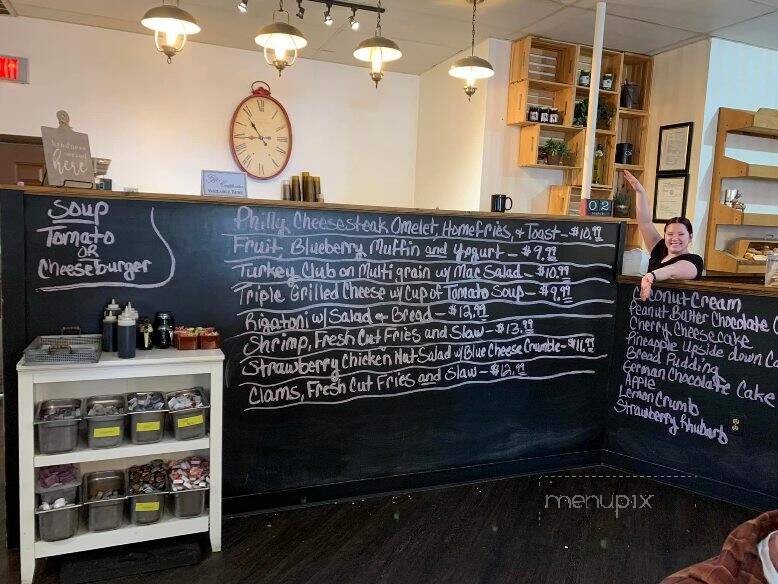 kindness
served
here
AVAILABLE HERE
02
Soup
Tomato
OR
Cheeseburger
Philly Cheesesteak Omelet, Homefries, + Toast - $10.99
Fruit, Blueberry Muffin and Yogurt - $9.99
Turkey Club on Multigrain w/ Mac Salad - $10.99
Triple Grilled Cheese w/ Cup of Tomato Soup - $9.99
Rigatoni w/ Salad & Bread - $12.99
Shrimp, Fresh Cut Fries and Slaw - $13.99
Strawberry Chicken Nut Salad w/ Blue Cheese Crumble - $11.99
Clams, Fresh Cut Fries and Slaw - $12.99
Coconut Cream
Peanut Butter Chocolate
Cherry Cheesecake
Pineapple Upside down Ca
Bread Pudding
German Chocolate Cake
Apple
Lemon Crumb
Strawberry Rhubarb
menupix